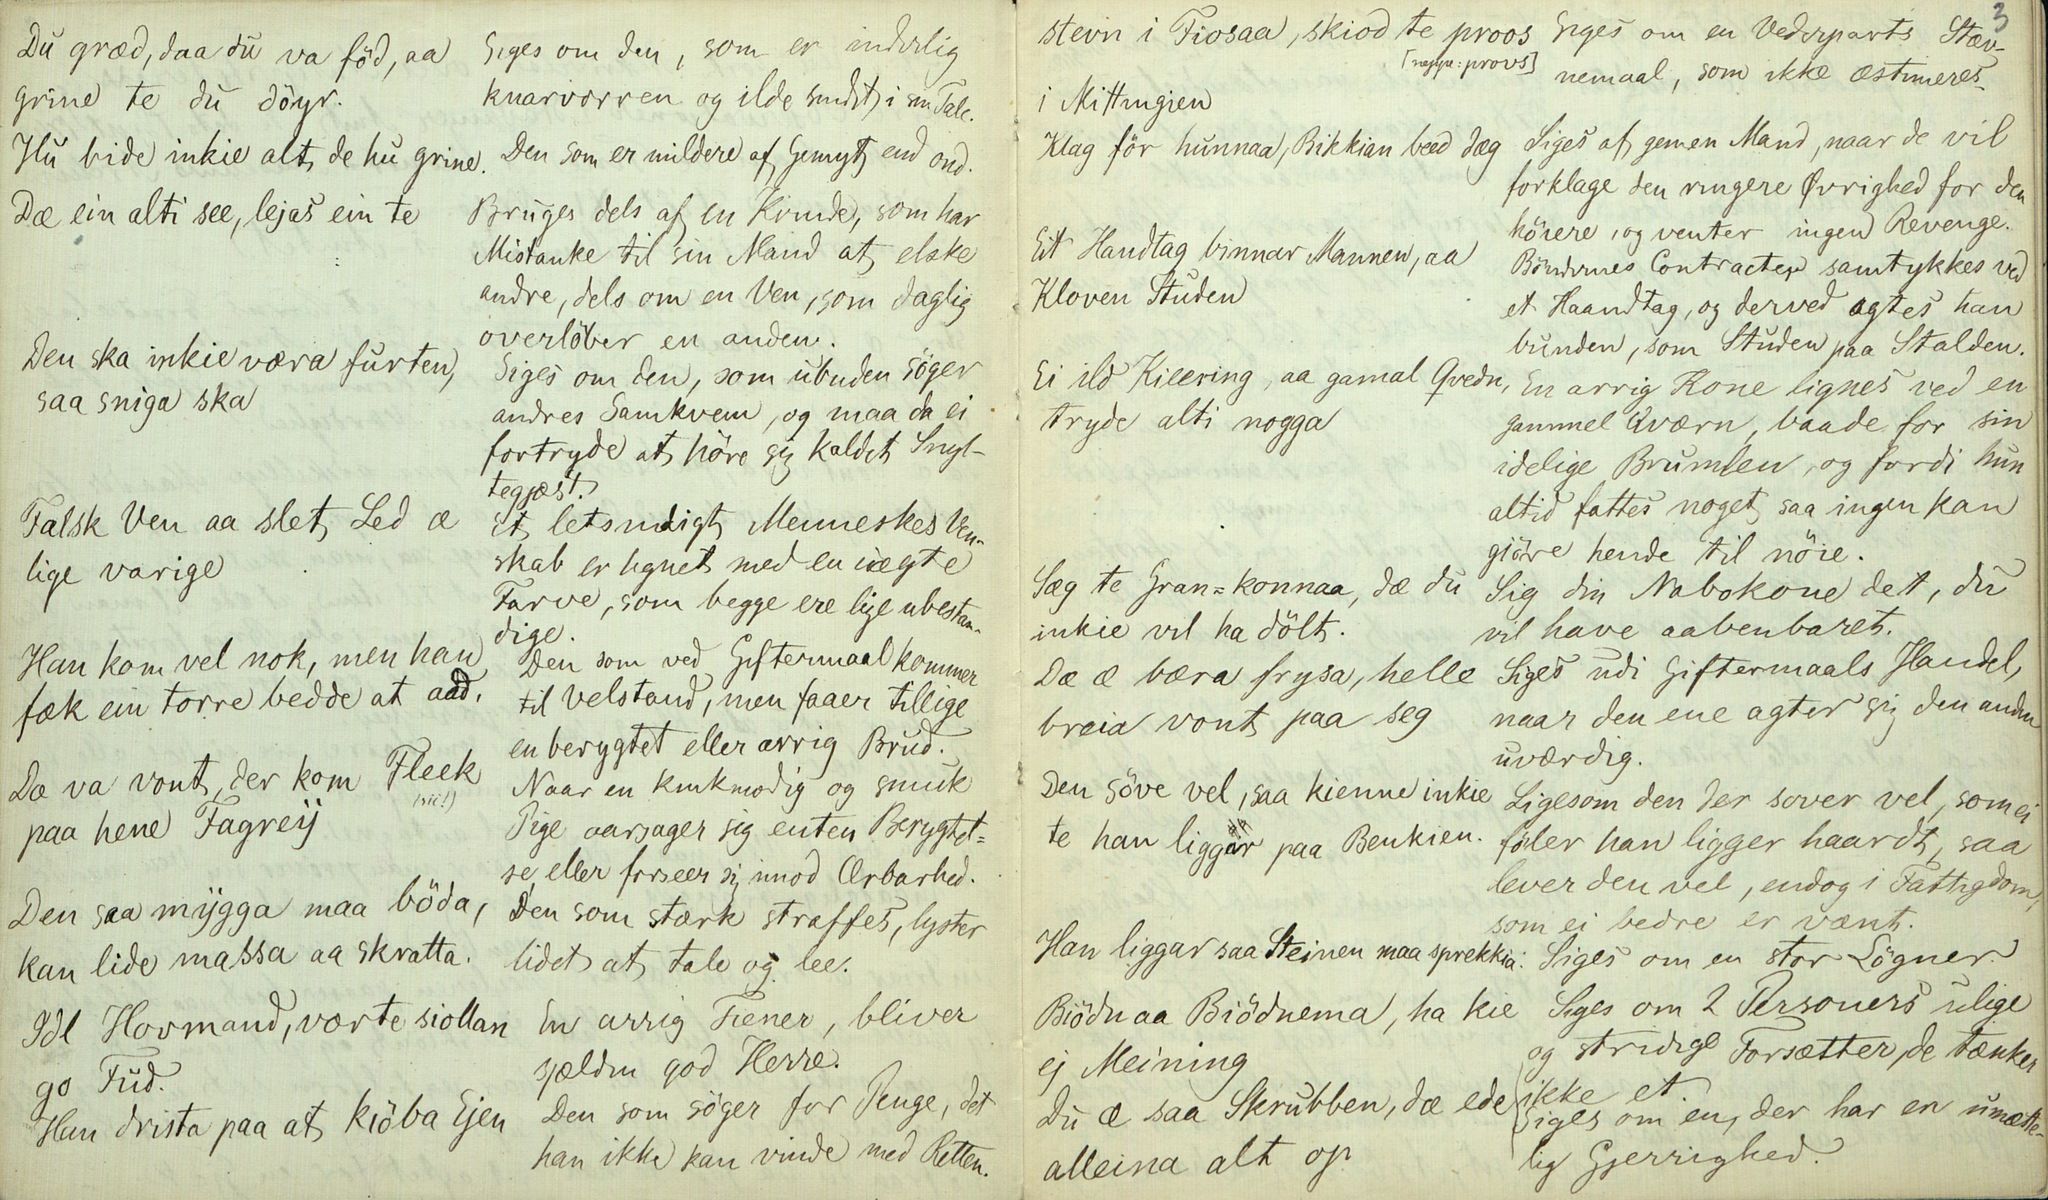 Du græd, daa du va föd, aa
grine te du döyr.
Siges om den, som er inderlig
knarvorren og ilde sindet i sin Tale.
Hu bide inkie alt, de hu grine.
Den som er mildere af Gemyt, end ond.
Dæ ein alti see, lejas ein te
Bruges dels af en Kvinde, som har
Mistanke til sin Mand at elske
andre, dels om en Ven, som daglig
overlöber en anden.
Den ska inkie væra furten,
saa sniga ska
Siges om den, som ubuden söger
andres Samkvem, og maa da ei
fortryde at höre sig kaldet Snyl-
tegjæst.
Falsk Ven aa slet Led æ
lige varige
Et letsindigt Menneskes Ven-
skab er lignet med en uægte
Farve, som begge ere lige ubestan-
dige.
Han kom vel nok, men han
fæk ein torre bedde at aad.
Den som ved Giftermaal kommer
til Velstand, men faaer tillige
en berygtet eller arrig Brud.
Dæ va vont, der kom Fleek
(sic!)
paa hene Fagreÿ
Naar en kmkmodig og smuk
Pige aarsager sig enten Berygtel=
se, eller forseer sig imod Ærbarhed.
Den saa mÿgga maa böda,
kan lide massa aa skratta.
Den som stærk straffes, lyster
lidet at tale og lee.
Idl Hovmand, vorte siollan
go Fud.
En arrig Tiener, bliver
sjælden god Herre.
Han drista paa at kiöba Ejen
Den som söger for Penge, det
han ikke kan vinde med Retten.
3
stevn i Fiosaa, skiod te proos
[neppe: provs]
i Mittingien
Siges om en Vederparts Stæv-
nemaal, som ikke æstimeres
Klag för hunnaa, Bikkian beed dæg
Siges af gemen Mand, naar de vil
forklage den ringere Øvrighed for den
höiere, og venter ingen Revenge.
Eit Handtag binnar Mannen, aa
Kloven Studen
Böndernes Contracter samtykkes ved
et Haandtag, og derved agtes han
bunden, som Studen paa Stalden.
Ei ild Kieering, aa gamal Qvedn,
tryde alti nogga
En arrig Kone lignes ved en
gammel Kværn, baade for sin
idelige Brumlen, og fordi hun
altid fattes noget, saa ingen kan
giöre hende til nöie.
Sæg te Gran=konnaa, dæ du
inkie vil ha dölt.
Sig din Nabokone det, du
vil have aabenbaret.
Dæ æ bæra frysa, helle
breia vont paa seg
Siges udi Giftermaals Handel,
naar den ene agter sig den anden
uværdig.
Den söve vel, saa kienne inkie
te han liggar paa Benkien.
Ligesom den der sover vel, som ei
föler han ligger haardt, saa
lever den vel, endog i Fattigdom,
som ei bedre er vænt.
Han liggar saa Steinen maa sprekkia.
Siges om en stor Lögner.
Biödn aa Biödnema, ha kie
ej Meining
Siges om 2 Personers ulige
og stridige Forsætter, de tænker
ikke et.
Du æ saa Skrubben, dæ ede
alleina alt op
Siges om en, der har en umætte-
lig Gjerrighed.